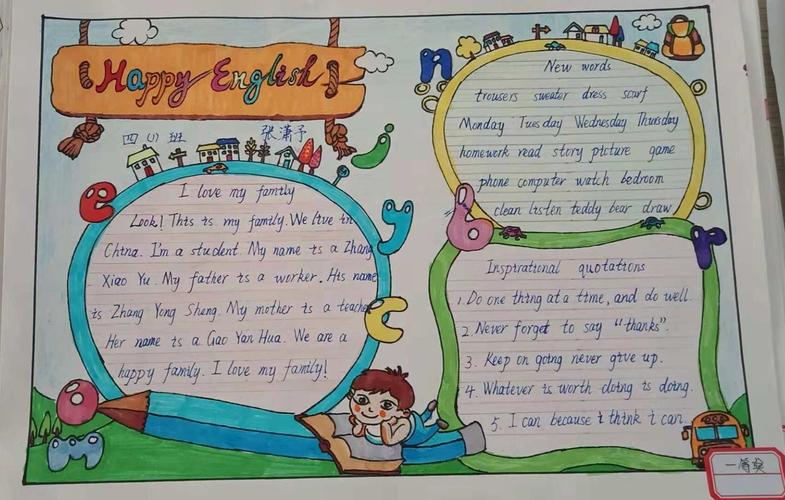 Happy English
四(1)班 张潇予
I love my family
Look! This is my family. We live in
China. I'm a student. My name is a Zhang
Xiao Yu. My father is a worker. His name
is Zhang Yong Sheng. My mother is a teacher
Her name is a Gao Yan Hua. We are a
happy family. I love my family!
New words
trousers sweater dress scarf
Monday Tuesday Wednesday Thursday
homework read story picture game
phone computer watch bedroom
clean listen teddy bear draw
Inspirational quotations
1. Do one thing at a time, and do well.
2. Never forget to say "thanks".
3. Keep on going never give up.
4. Whatever is worth doing is doing.
5. I can because i think i can.
一等奖
n
j
e
y
c
b
r
a
m